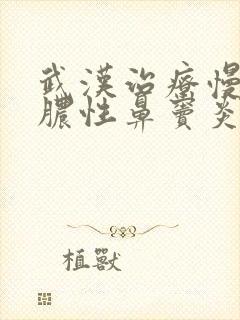 武漢治療慢
膿性鼻竇炎
植獸